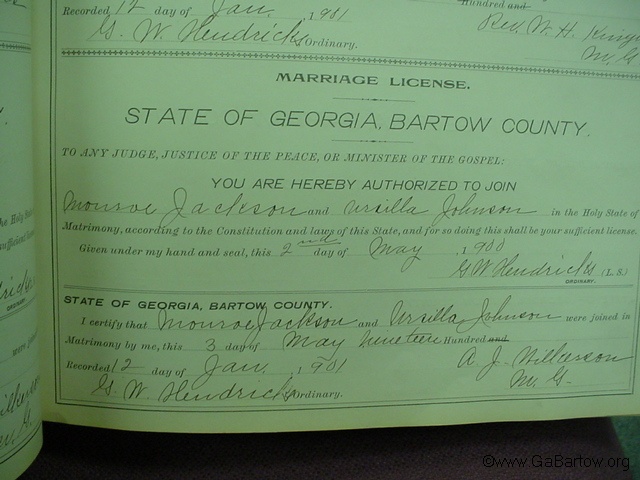 Recorded 12 day of Jan. 1901
Hundred and
G. W. Hendricks Ordinary.
Rev. W. H. King
M. G.
MARRIAGE LICENSE.
STATE OF GEORGIA, BARTOW COUNTY.
TO ANY JUDGE, JUSTICE OF THE PEACE, OR MINISTER OF THE GOSPEL:
YOU ARE HEREBY AUTHORIZED TO JOIN
Monroe Jackson and Ursilla Johnson in the Holy State of
Matrimony, according to the Constitution and laws of this State, and for so doing this shall be your sufficient license.
Given under my hand and seal, this 2nd day of May, 1900
G W Hendricks (L. S.)
ORDINARY.
STATE OF GEORGIA, BARTOW COUNTY.
I certify that Monroe Jackson and Ursilla Johnson were joined in
Matrimony by me, this 3 day of May Nineteen Hundred and
Recorded 12 day of Jan. 1901
A. J. Wilkerson
G. W. Hendricks Ordinary.
M. G.
©www.GaBartow.org